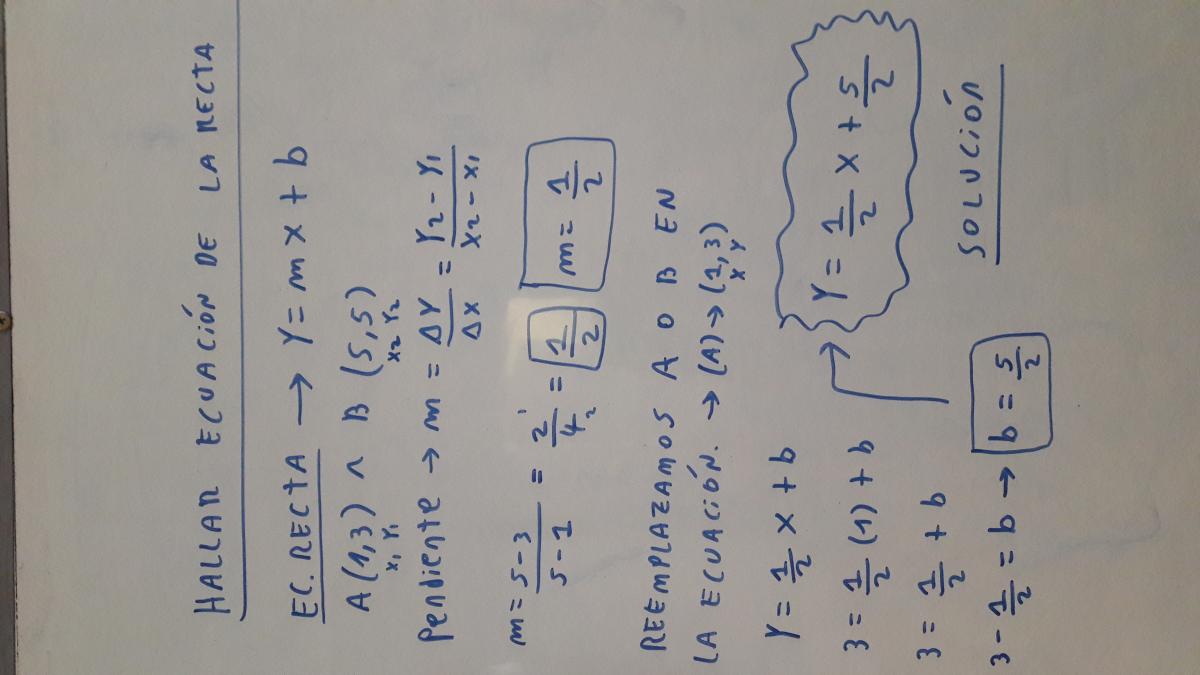 HALLAR ECUACIÓN DE LA RECTA
EC. RECTA → Y = m x + b
A (1,3) ∧ B (5,5)
x₁ Y₁ x₂ Y₂
Pendiente → m = ΔY/Δx = (Y₂ - Y₁)/(x₂ - x₁)
m = (5-3)/(5-1) = 2¹/4₂ = 1/2 m = 1/2
REEMPLAZAMOS A O B EN
LA ECUACIÓN. → (A) → (1,3)
x Y
Y = 1/2 x + b
3 = 1/2 (1) + b
3 = 1/2 + b
3 - 1/2 = b → b = 5/2
Y = 1/2 x + 5/2
SOLUCIÓN